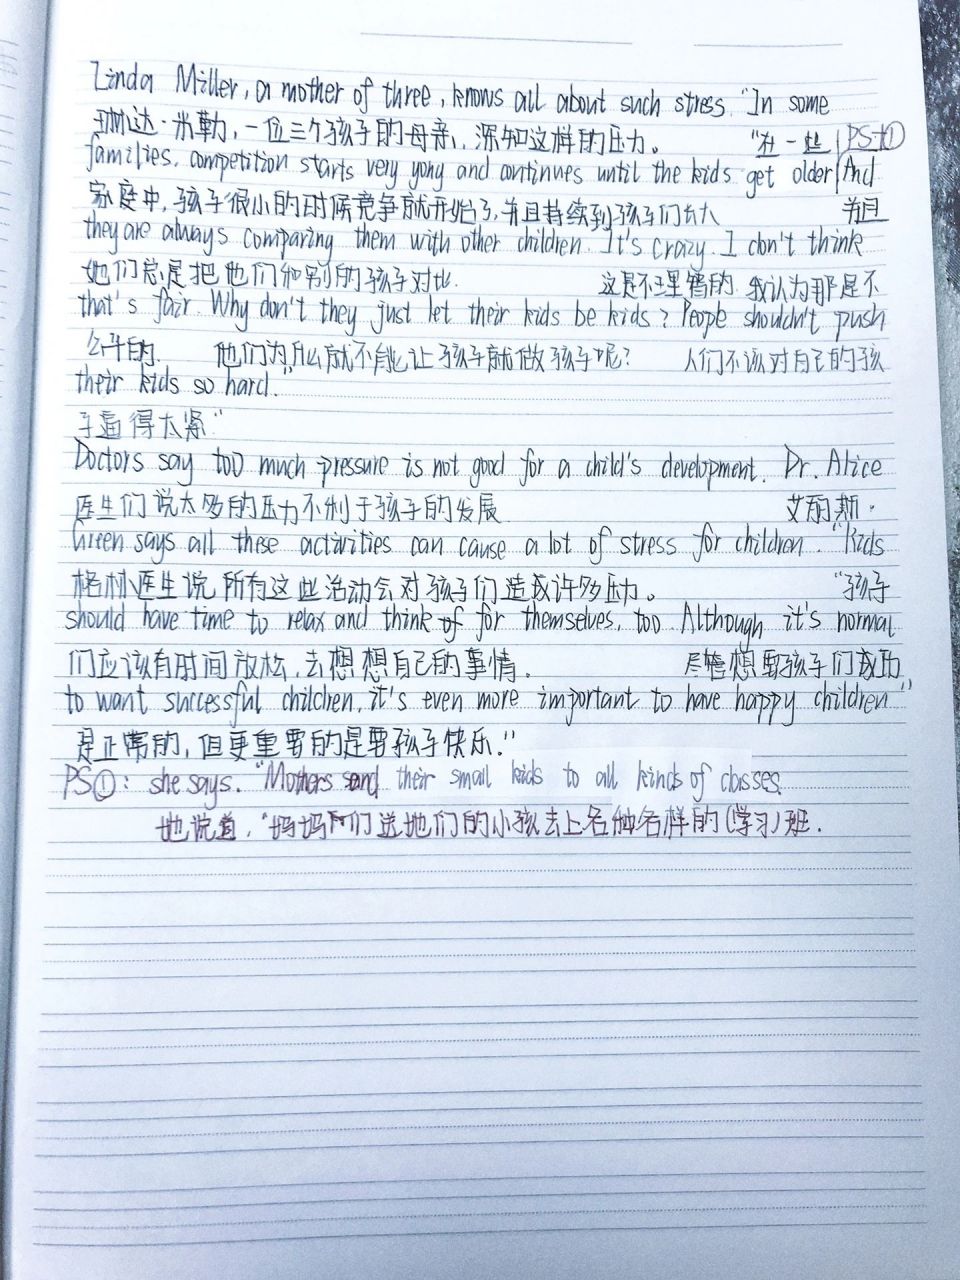 Linda Miller, a mother of three, knows all about such stress. "In some
琳达·米勒，一位三个孩子的母亲，深知这样的压力。 "在一些 PS+①
families, competition starts very yong and continues until the kids get older And
家庭中，孩子很小的时候竞争就开始了，并且持续到孩子们长大 并且
they are always comparing them with other children. It's crazy. I don't think
她们总是把他们和别的孩子对比. 这是不理智的. 我认为那是不
that's fair. Why don't they just let their kids be kids? People shouldn't push
公平的. 他们为什么就不能让孩子就做孩子呢? 人们不该对自己的孩
their kids so hard."
子逼得太紧"
Doctors say too much pressure is not good for a child's development. Dr. Alice
医生们说太多的压力不利于孩子的发展 艾丽斯·
Green says all these activities can cause a lot of stress for children. "Kids
格林医生说，所有这些活动会对孩子们造成许多压力。 "孩子
should have time to relax and think for themselves, too. Although it's normal
们应该有时间放松，去想想自己的事情. 尽管想要孩子们成功
to want successful children, it's even more important to have happy children"
是正常的，但更重要的是要孩子快乐."
PS①: she says. "Mothers send their small kids to all kinds of classes.
她说道，"妈妈们送她们的小孩去上各种各样的(学习)班.